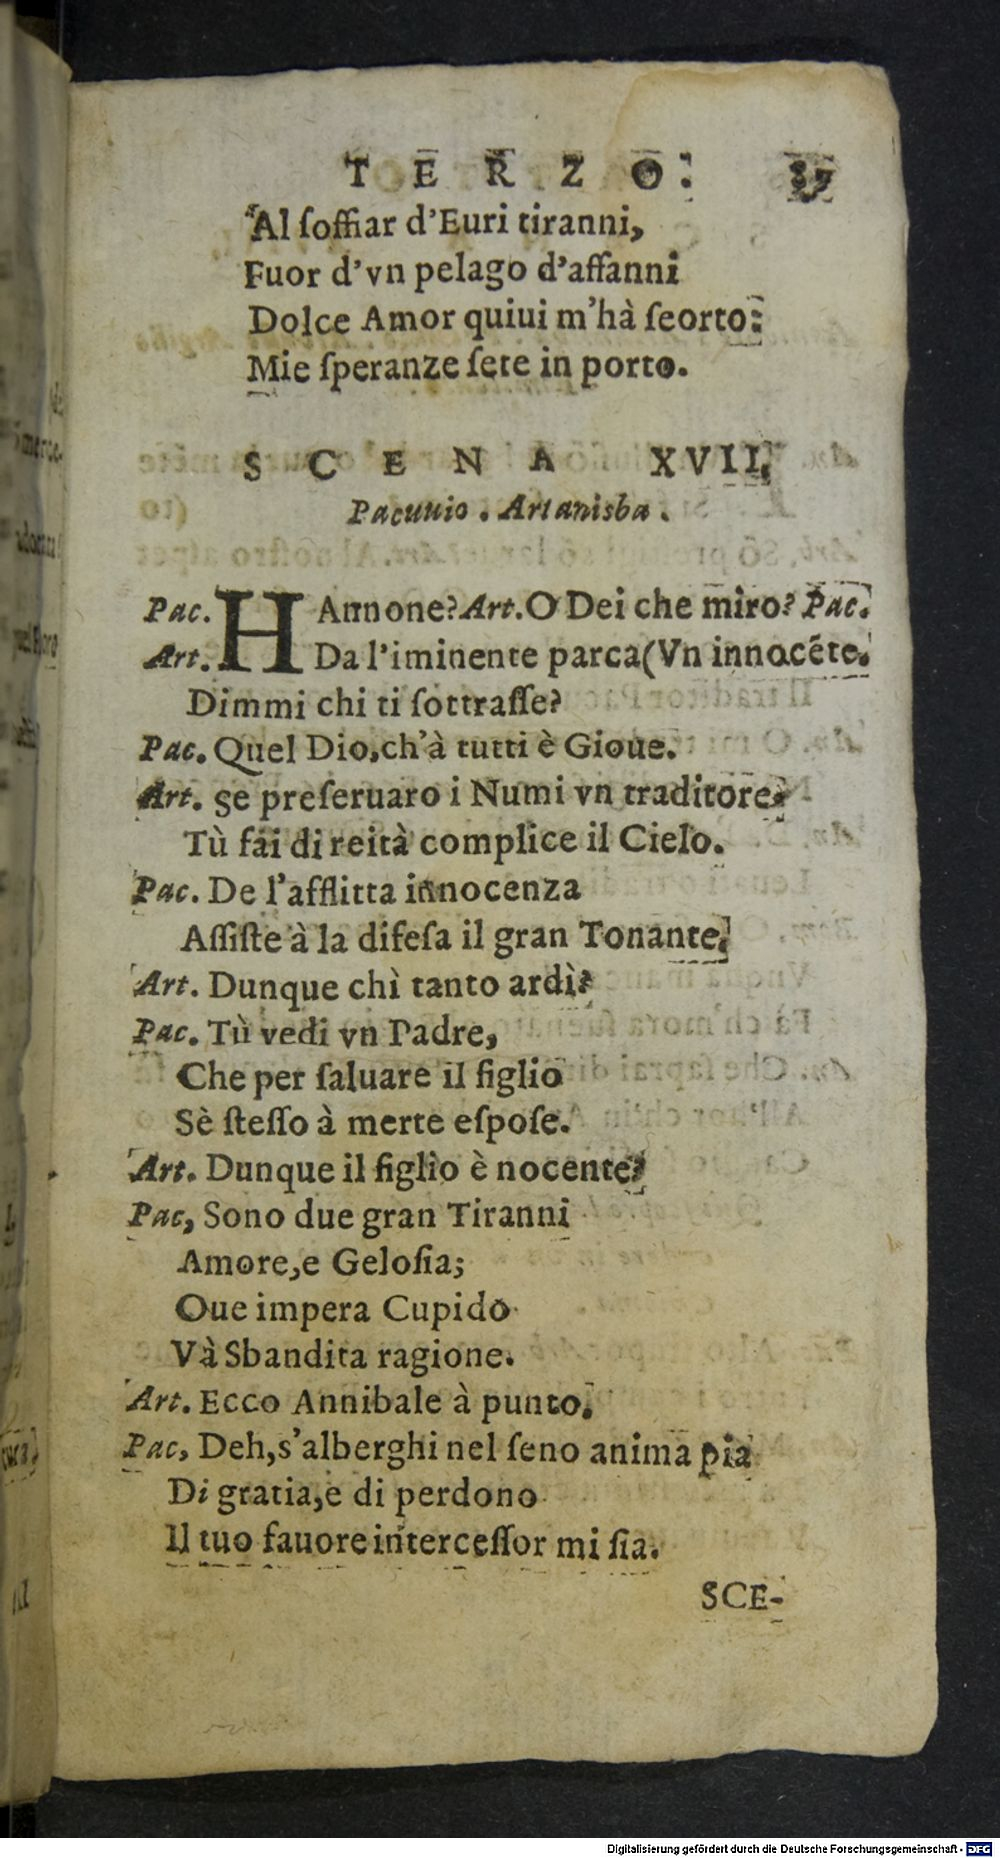 TERZO.
Al ſoffiar d'Euri tiranni,
Fuor d'vn pelago d'affanni
Dolce Amor quiui m'hà ſeorto:
Mie ſperanze ſete in porto.
SCENA XVII.
Pacuuio. Artanisba.
Pac. HAnnone? Art. O Dei che miro? Pac.
Art. Da l'iminente parca (Vn innocẽte.
Dimmi chi ti ſottraſſe?
Pac. Quel Dio, ch'à tutti è Gioue.
Art. Se preſeruaro i Numi vn traditore,
Tù fai di reità complice il Cielo.
Pac. De l'afflitta innocenza
Aſſiſte à la difeſa il gran Tonante.
Art. Dunque chì tanto ardì?
Pac. Tù vedi vn Padre,
Che per ſaluare il figlio
Sè ſteſſo à merte eſpoſe.
Art. Dunque il figlio è nocente?
Pac, Sono due gran Tiranni
Amore, e Geloſia;
Oue impera Cupido
Và Sbandita ragione.
Art. Ecco Annibale à punto.
Pac, Deh, s'alberghi nel ſeno anima pia
Di gratia, e di perdono
Il tuo fauore interceſſor mi ſia.
SCE-
Digitalisierung gefördert durch die Deutsche Forschungsgemeinschaft - DFG